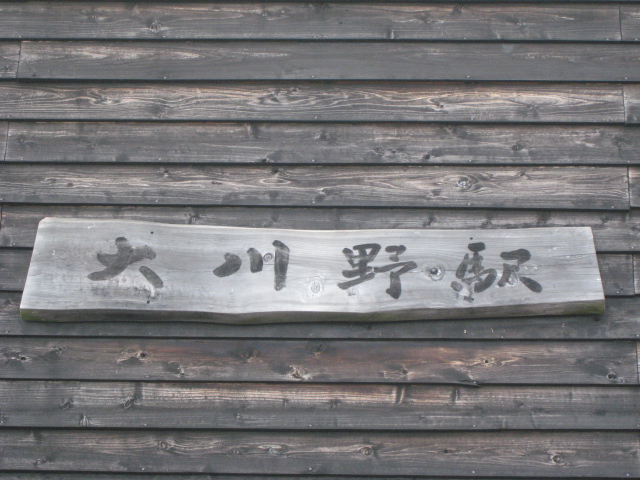 大川野駅